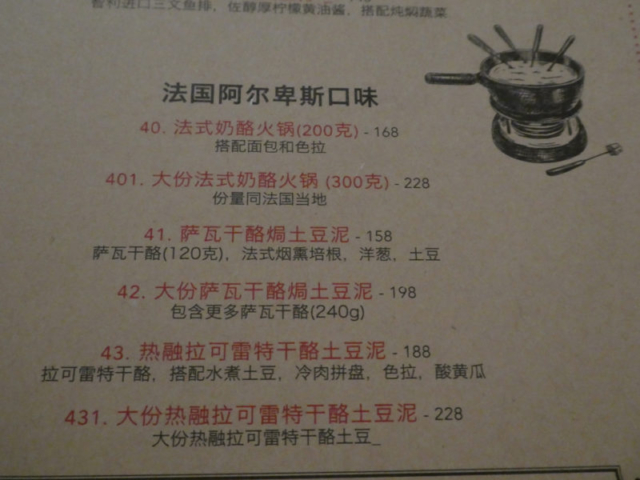 智利进口三文鱼排，佐醇厚柠檬黄油酱，搭配炖焖蔬菜
法国阿尔卑斯口味
40. 法式奶酪火锅(200克) - 168
搭配面包和色拉
401. 大份法式奶酪火锅 (300克) - 228
份量同法国当地
41. 萨瓦干酪焗土豆泥 - 158
萨瓦干酪(120克)，法式烟熏培根，洋葱，土豆
42. 大份萨瓦干酪焗土豆泥 - 198
包含更多萨瓦干酪(240g)
43. 热融拉可雷特干酪土豆泥 - 188
拉可雷特干酪，搭配水煮土豆，冷肉拼盘，色拉，酸黄瓜
431. 大份热融拉可雷特干酪土豆泥 - 228
大份热融拉可雷特干酪土豆_